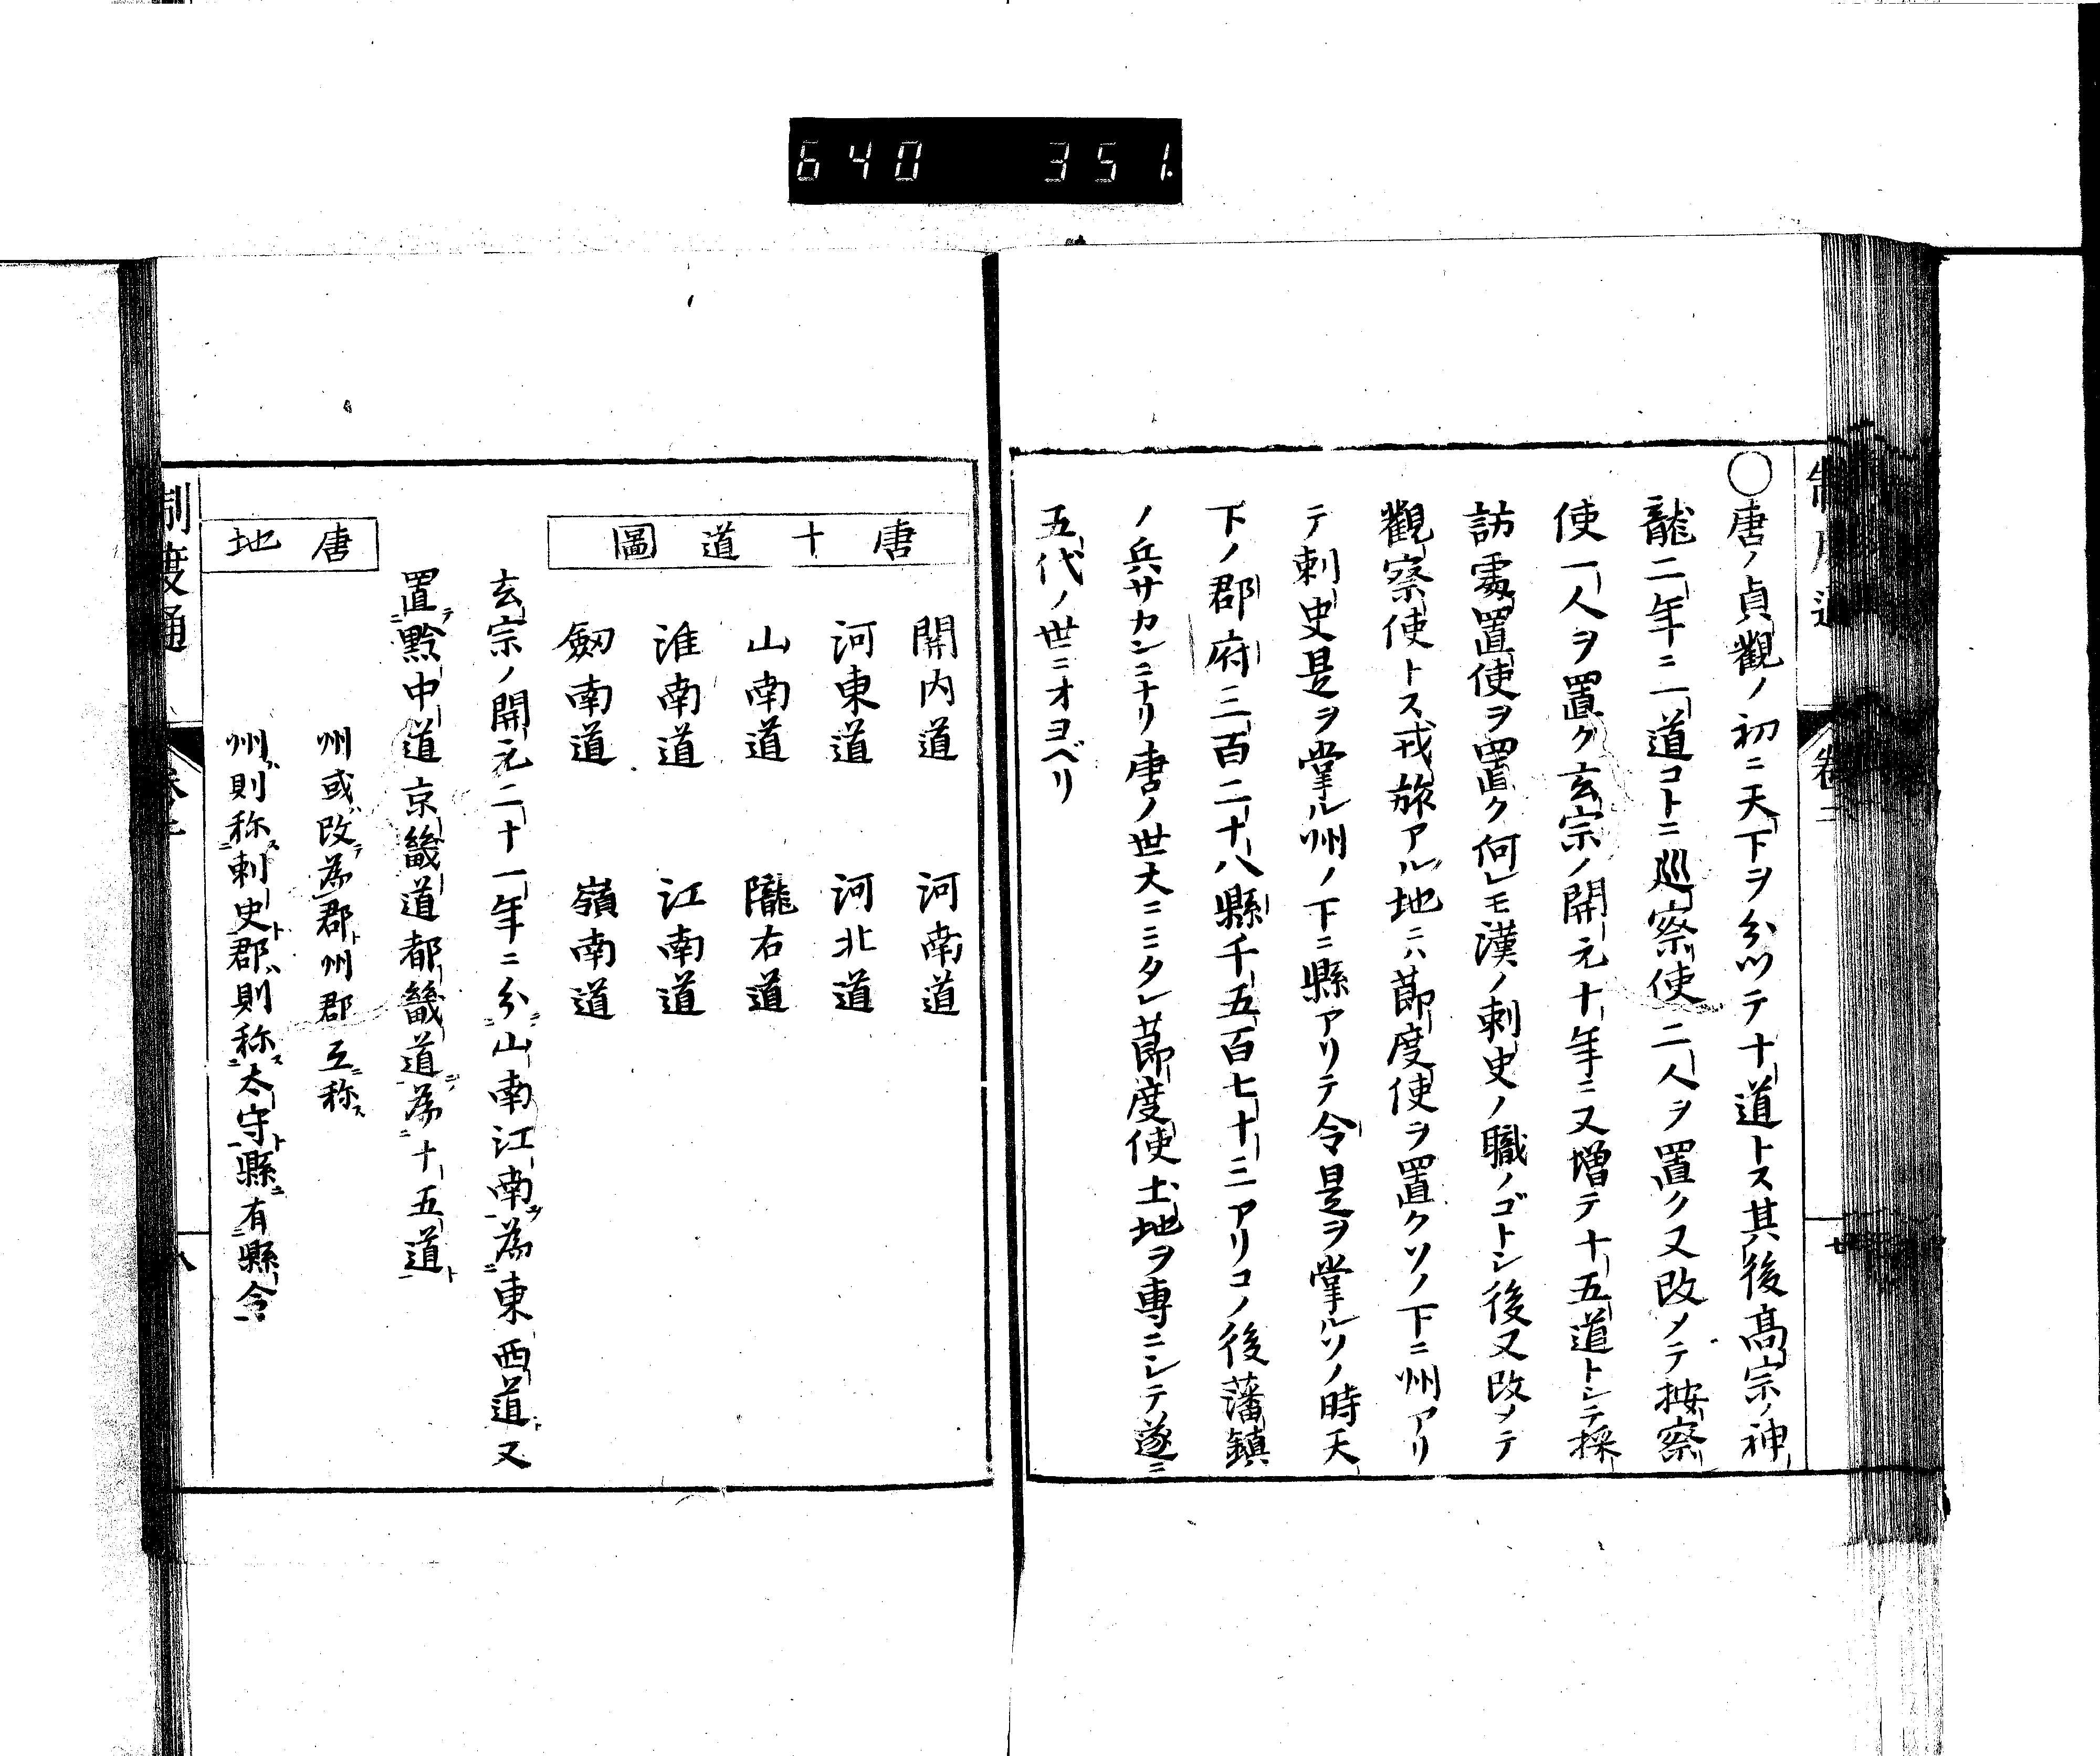 640 351
○唐ノ貞觀ノ初ニ天下ヲ分ツテ十道トス其後高宗ノ神
龍二年ニ一道コトニ巡察使二人ヲ置ク又改メテ按察
使一人ヲ置ク玄宗ノ開元十年ニ又増テ十五道トシテ採
訪處置使ヲ置ク何レモ漢ノ刺史ノ職ノゴトシ後又改メテ
觀察使トス戎旅アル地ニハ節度使ヲ置クソノ下ニ州アリ
テ刺史是ヲ掌ル州ノ下ニ縣アリテ令是ヲ掌ルソノ時天
下ノ郡府三百二十八縣千五百七十三アリコノ後藩鎮
ノ兵サカンニナリ唐ノ世大ニミタレ節度使土地ヲ專ニシテ遂ニ
五代ノ世ニオヨベリ
唐十道圖
開内道 河南道
河東道 河北道
山南道 隴右道
淮南道 江南道
劔南道 嶺南道
玄宗ノ開元二十一年ニ分山南江南為東西道又
置黔中道京畿道都畿道為十五道
唐地
州或改為郡州郡互称
州則称刺史郡則称太守縣有縣令
制度通
八